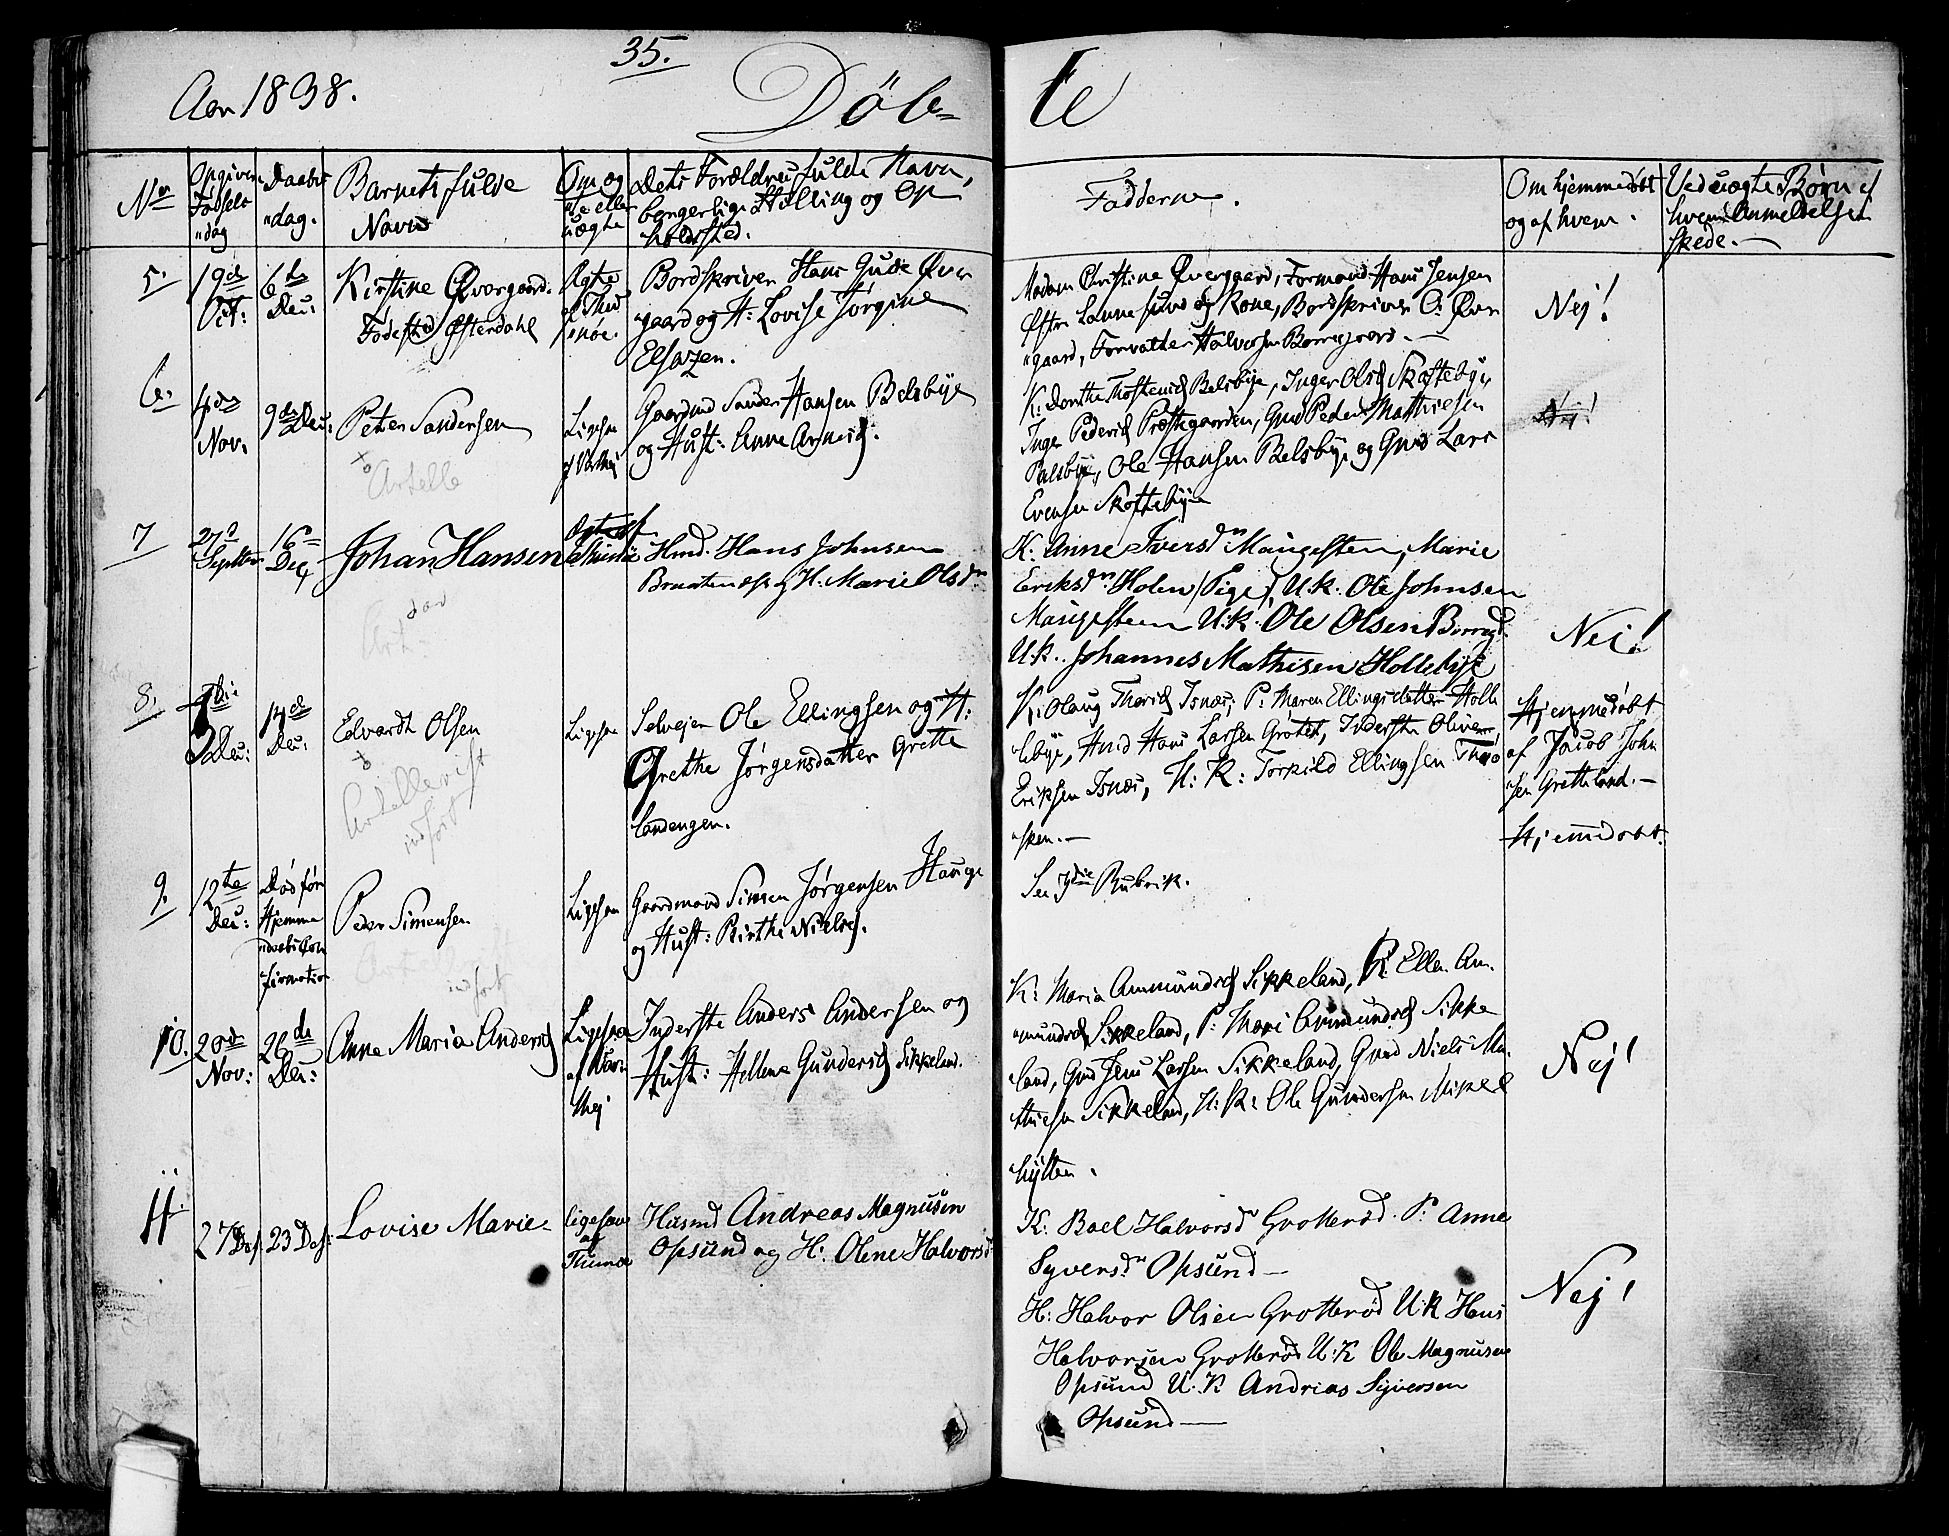 35.
Aar 1838.
Døb-
te
No
Opgiven Fødsels dag
Daabs dag.
Barnets fulde Navn
Om ægte eller uægte
Dets Forældres fulde Navn, borgerlige Stilling og Opholdsted.
Fadderne.
Om hjemmedøbt og af hvem.
Ved uægte Børn af hvem Anmeldelsen skede.
5.
19de Oct:
6te Dec:
Kirstine Øvergaard.
Fødested Østerdahl
Ægte
Bordskriver Hans Gude Øver
gaard og H: Lovise Jørgine
Elsazen.
Madam Christine Øvergaard, Formand Hans Jensen
Kone, Bordskriver O: Øver
gaard, Forvalter Halvorsen Borregaard.
Nej!
6.
4de Nov.
9de Dec:
Peter Sandersen
Gaardmd Sander Hansen Belsbye
og Hust: Anne Arnesd.
K: Dorthe Belsbye, Inger Olsd Skoftebye,
Inger Pedersd Præstegaarden, Gmd Peder Mathiesen
Palsbye, Ole Hansen Belsbye og Gmd Lars
Evensen Skoftebye
Nej!
7
27de Septbr
16 Dec
Johan Hansen
Ægte af Thunø
Hmd. Hans Johnsen
og H. Marie Olsdr
K: Anne Iversdr Maugesten, Marie
Eriksdr Holen (Pige), U.K. Ole Johnsen
Maugesteen U.K. Ole Olsen Borregd.
U.K. Johannes Mathisen Hollebye
Nei!
8.
Dec:
Dec:
Edvardt Olsen
indført
Ligesaa
Selvejer Ole Ellingsen og H:
Grethe Jørgensdatter Grette
landengen.
K: Olaug Isnæs, P: Maren Ellingsdatter Holle
bye, Hmd Hans Larsen Inderste Oliver
Eriksen Isnæs, U: K: Torkild Ellingsen
sken.
Hjemmedøbt
af Jacob John
sen Gretteland.
9.
12te Dec:
Død før Hjemmedaabs Confirmation
Peder Simensen
indført
Ligesaa
Gaardmand Simen Jørgensen Hauge
og Hust: Birthe Nielsd.
See Rubrik.
Hjemmedøbt
10.
20de Nov:
26de Dec:
Anne Maria Andersd
Ligesaa
Inderste Anders Andersen og
Hust: Hellene Gundersd Sikkeland.
K: Maria Ammundsd Sikkeland, P: Ellen Am
mundsd Sikkeland, P: Mari Ammundsd Sikke
land, Gmd Jens Larsen Sikkeland, Gmd Niels Ma
thiesen Sikkeland, U: K: Ole Gundersen Mikkel
hytten.
Nej!
11.
27
23 Des:
Lovise Marie
ligesaa af Thunø
Husmd Andreas Magnusen
Opsund og H: Olene Halvorsd
K: Boel Halvorsdr Grotterød. P: Anne
Syversdr Opsund
H: Halvor Olsen Grotterød U:K Hans
Halvorsen Grotterød U:K Ole Magnusen
Opsund U.K Andrias Syversen
Opsund
Nej!